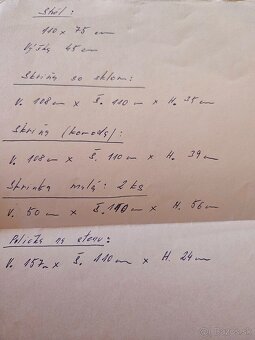 Stôl:
110 x 75 cm
Výška 45 cm
Skriňa so sklom:
V. 108 cm x Š. 110 cm x H. 35 cm
Skriňa (komoda):
V. 108 cm x Š. 110 cm x H. 39 cm
Skrinka malá: 2 ks
V. 50 cm x Š. 110 cm x H. 56 cm
Polička na stenu:
V. 157 cm x Š. 110 cm x H. 24 cm
bazos.sk